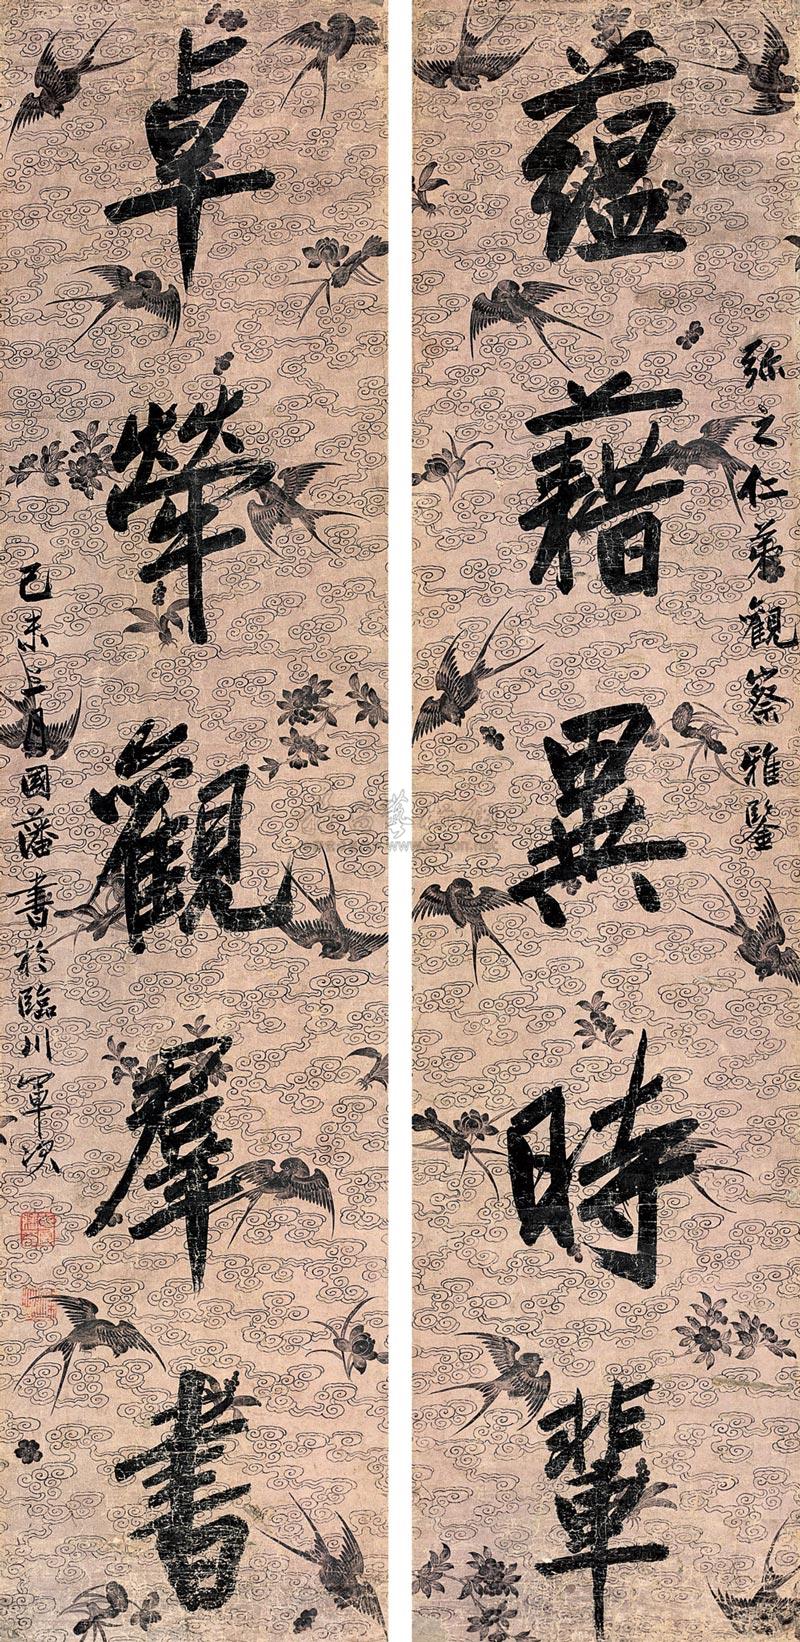 弥之仁弟觀察雅鑒
蘊藉異時輩
卓犖觀羣書
己未三月國藩書於臨川軍次